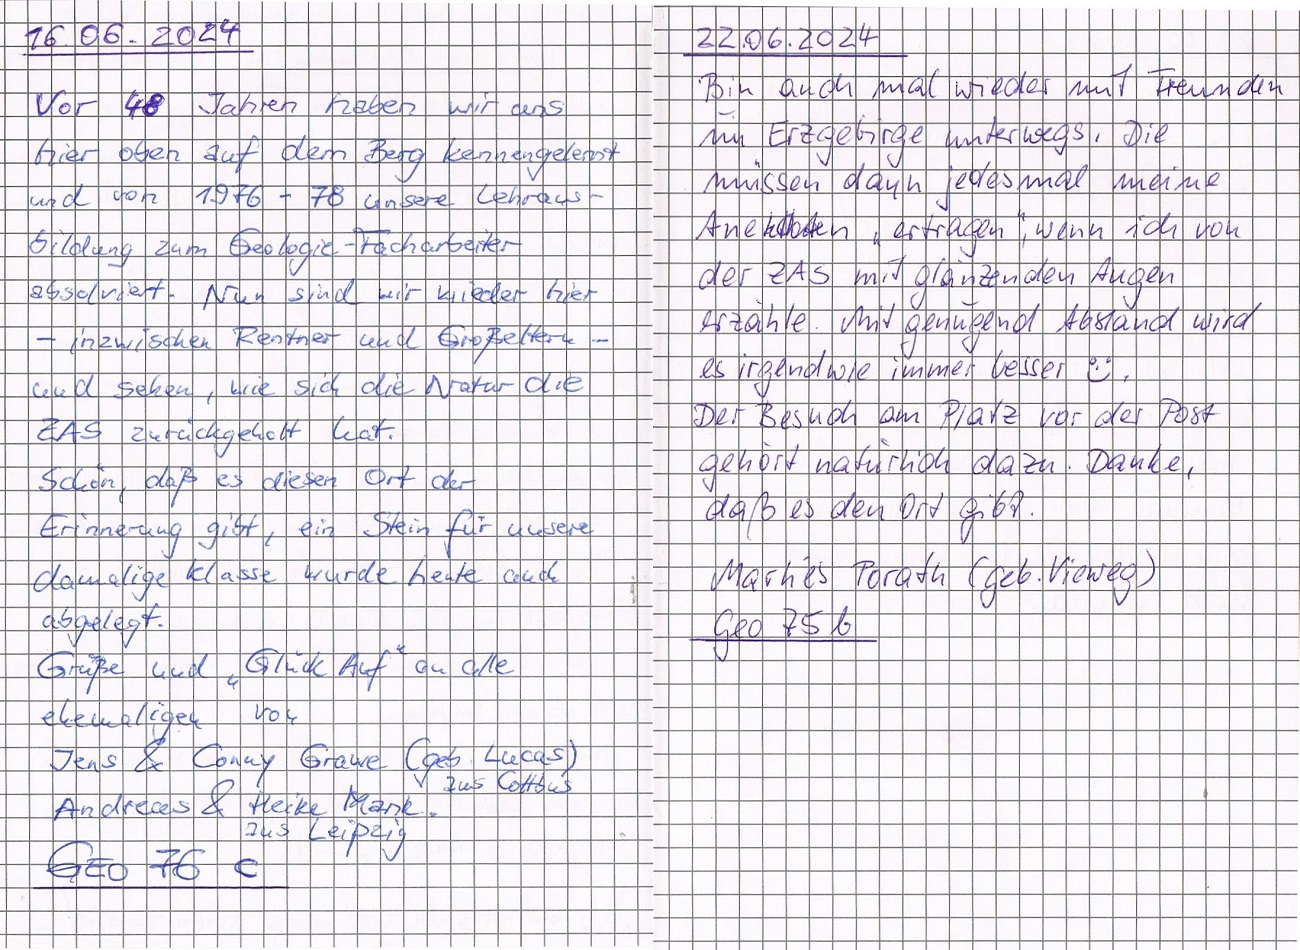 16.06.2024
Vor 48 Jahren haben wir uns
hier oben auf dem Berg kennengelernt
und von 1976 - 78 unsere Lehraus-
bildung zum Geologie-Facharbeiter
absolviert. Nun sind wir wieder hier
- inzwischen Rentner und Großeltern -
und sehen, wie sich die Natur die
ZAS zurückgeholt hat.
Schön, daß es diesen Ort der
Erinnerung gibt, ein Stein für unsere
damalige Klasse wurde heute auch
abgelegt.
Grüße und „Glück Auf“ an alle
ehemaligen von
Jens & Conny Grawe (geb. Lucas)
aus Cottbus
Andreas & Heike Mank.
aus Leipzig
GEO 76 c
22.06.2024
Bin auch mal wieder mit Freunden
im Erzgebirge unterwegs. Die
müssen dann jedesmal meine
Anekdoten „ertragen“, wenn ich von
der ZAS mit glänzenden Augen
erzähle. Mit genügend Abstand wird
es irgendwie immer besser ☺.
Der Besuch am Platz vor der Post
gehört natürlich dazu. Danke,
daß es den Ort gibt.
Marlies Porath (geb. Vieweg)
Geo 75 b